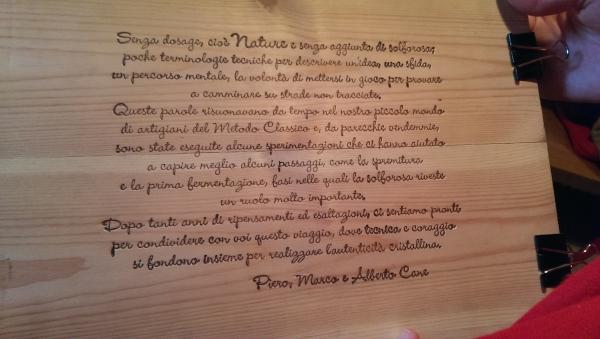 Senza dosage, cioè Nature e senza aggiunta di solforosa;
poche terminologie tecniche per descrivere un'idea, una sfida,
un percorso mentale, la volontà di mettersi in gioco per provare
a camminare su strade non tracciate.
Queste parole risuonavano da tempo nel nostro piccolo mondo
di artigiani del Metodo Classico e, da parecchie vendemmie,
sono state eseguite alcune sperimentazioni che ci hanno aiutato
a capire meglio alcuni passaggi, come la spremitura
e la prima fermentazione, fasi nelle quali la solforosa riveste
un ruolo molto importante.
Dopo tanti anni di ripensamenti ed esaltazioni, ci sentiamo pronti
per condividere con voi questo viaggio, dove tecnica e coraggio
si fondono insieme per realizzare l'autenticità cristallina.
Piero, Marco e Alberto Cane